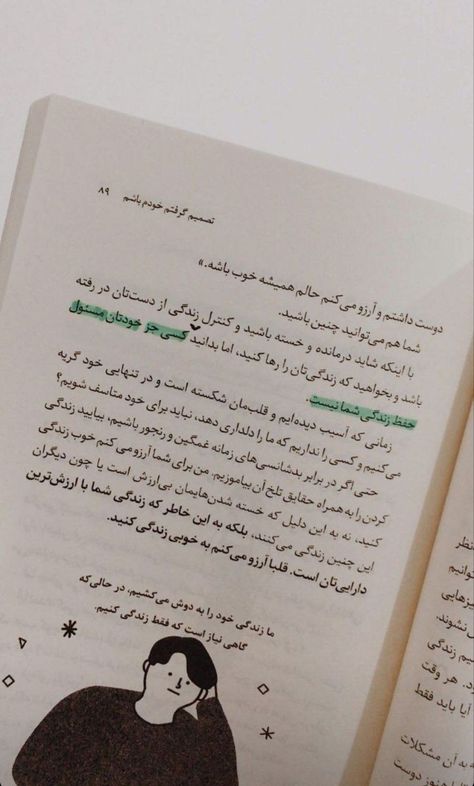 تصمیم گرفتم خودم باشم ۸۹
دوست داشتم و آرزو می‌کنم حالم همیشه خوب باشه.»
شما هم می‌توانید چنین باشید.
با اینکه شاید درمانده و خسته باشید و کنترل زندگی از دست‌تان در رفته
باشد و بخواهید که زندگی‌تان را رها کنید، اما بدانید کسی جز خودتان مسئول
حفظ زندگی شما نیست.
زمانی که آسیب دیده‌ایم و قلب‌مان شکسته است و در تنهایی خود گریه
می‌کنیم و کسی را نداریم که ما را دلداری دهد، نباید برای خود متاسف شویم؟
حتی اگر در برابر بدشانسی‌های زمانه غمگین و رنجور باشیم، بیایید زندگی
کردن را به همراه حقایق تلخ آن بیاموزیم. من برای شما آرزو می‌کنم خوب زندگی
کنید، نه به این دلیل که خسته شدن‌هایمان بی‌ارزش است یا چون دیگران
این چنین زندگی می‌کنند، بلکه به این خاطر که زندگی شما با ارزش‌ترین
دارایی‌تان است. قلبا آرزو می‌کنم به خوبی زندگی کنید.
ما زندگی خود را به دوش می‌کشیم، در حالی‌که
گاهی نیاز است که فقط زندگی کنیم.
نظر
توانیم
نشوند.
یم زندگی
د. هر وقت
آیا باید فقط
ه به آن مشکلات
هنوز دوست